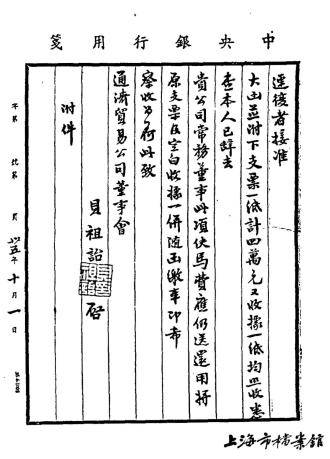 中央銀行用箋
逕復者接准
大函並附下支票一紙計四萬元又收據一紙均照收悉
查本人已辭去
貴公司常務董事此項伕馬費應仍送還用將
原支票及空白收據一併隨函繳奉即希
察收為荷此致
通濟貿易公司董事會
附件
貝祖詒
啓
字第
號第
頁
卅五年十月一日
上海市檔案館